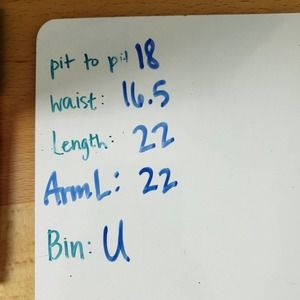 pit to pit 18
waist: 16.5
Length: 22
Arm L: 22
Bin: U